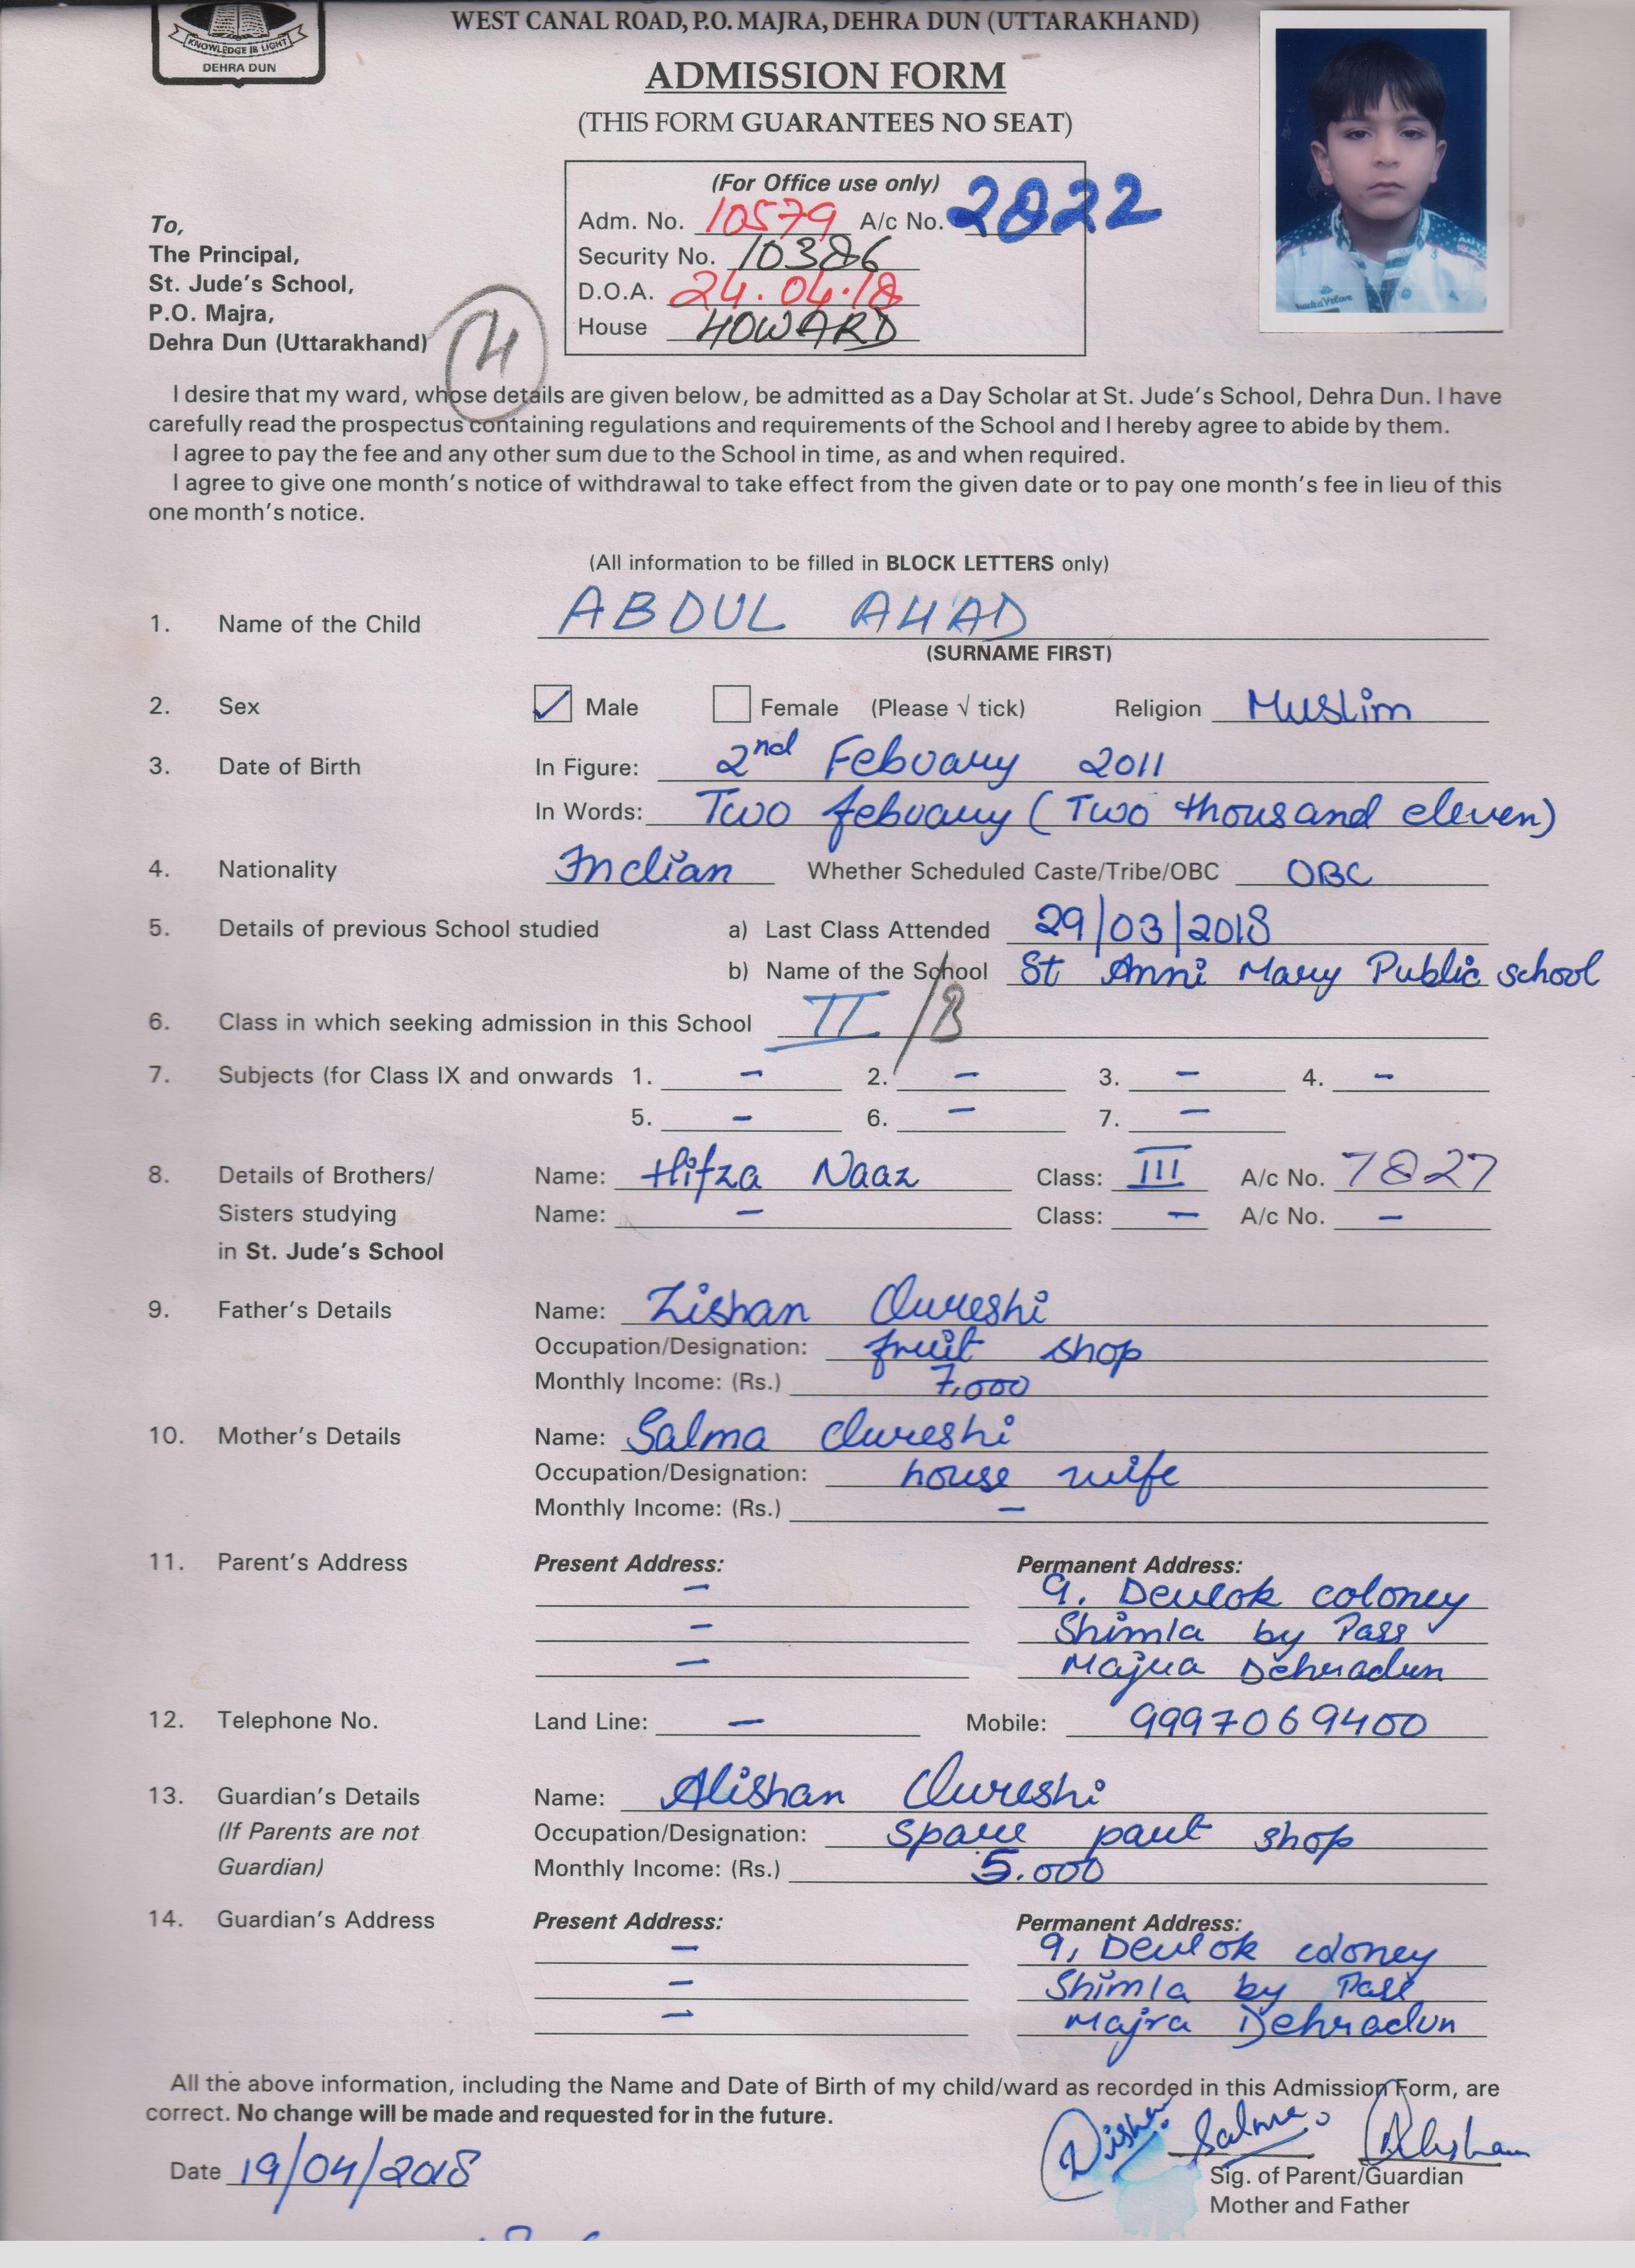 WEST CANAL ROAD, P.O. MAJRA, DEHRA DUN (UTTARAKHAND)
KNOWLEDGE IS LIGHT
DEHRA DUN
ADMISSION FORM
(THIS FORM GUARANTEES NO SEAT)
(For Office use only)
Adm. No. 10579 A/c No. 2822
Security No. 10386
D.O.A. 24.04.18
House HOWARD
To,
The Principal,
St. Jude's School,
P.O. Majra,
Dehra Dun (Uttarakhand)
I desire that my ward, whose details are given below, be admitted as a Day Scholar at St. Jude's School, Dehra Dun. I have
carefully read the prospectus containing regulations and requirements of the School and I hereby agree to abide by them.
I agree to pay the fee and any other sum due to the School in time, as and when required.
I agree to give one month's notice of withdrawal to take effect from the given date or to pay one month's fee in lieu of this
one month's notice.
(All information to be filled in BLOCK LETTERS only)
1. Name of the Child ABDUL AHAD
(SURNAME FIRST)
2. Sex ✓ Male Female (Please √ tick) Religion Muslim
3. Date of Birth In Figure: 2nd Febuary 2011
In Words: Two febuary (Two thousand eleven)
4. Nationality Indian Whether Scheduled Caste/Tribe/OBC OBC
5. Details of previous School studied a) Last Class Attended 29/03/2018
b) Name of the School St Anni Mary Public school
6. Class in which seeking admission in this School II /B
7. Subjects (for Class IX and onwards 1. – 2. – 3. – 4. –
5. – 6. – 7. –
8. Details of Brothers/ Name: Hifza Naaz Class: III A/c No. 7827
Sisters studying Name: – Class: – A/c No. –
in St. Jude's School
9. Father's Details Name: Zishan Qureshi
Occupation/Designation: fruit shop
Monthly Income: (Rs.) 7,000
10. Mother's Details Name: Salma Qureshi
Occupation/Designation: house wife
Monthly Income: (Rs.) –
11. Parent's Address Present Address: Permanent Address:
– 9, Devlok coloney
– Shimla by Pass
– Majra Dehradun
12. Telephone No. Land Line: – Mobile: 9997069400
13. Guardian's Details Name: Alishan Qureshi
(If Parents are not Occupation/Designation: spare part shop
Guardian) Monthly Income: (Rs.) 5.000
14. Guardian's Address Present Address: Permanent Address:
– 9, Devlok coloney
– Shimla by Pass
– Majra Dehradun
All the above information, including the Name and Date of Birth of my child/ward as recorded in this Admission Form, are
correct. No change will be made and requested for in the future.
Zishan Salma Alishan
Date 19/04/2018
Sig. of Parent/Guardian
Mother and Father